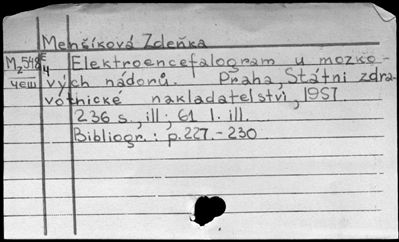 Menšíková Zdeňka
M₂548 E Elektroencefalogram u mozko-
чеш 4 vých nádorů. Praha, Státni zdra-
votnické nakladatelstvi, 1957
236 s., ill; 61 l. ill.
Bibliogr.: p.227.-230